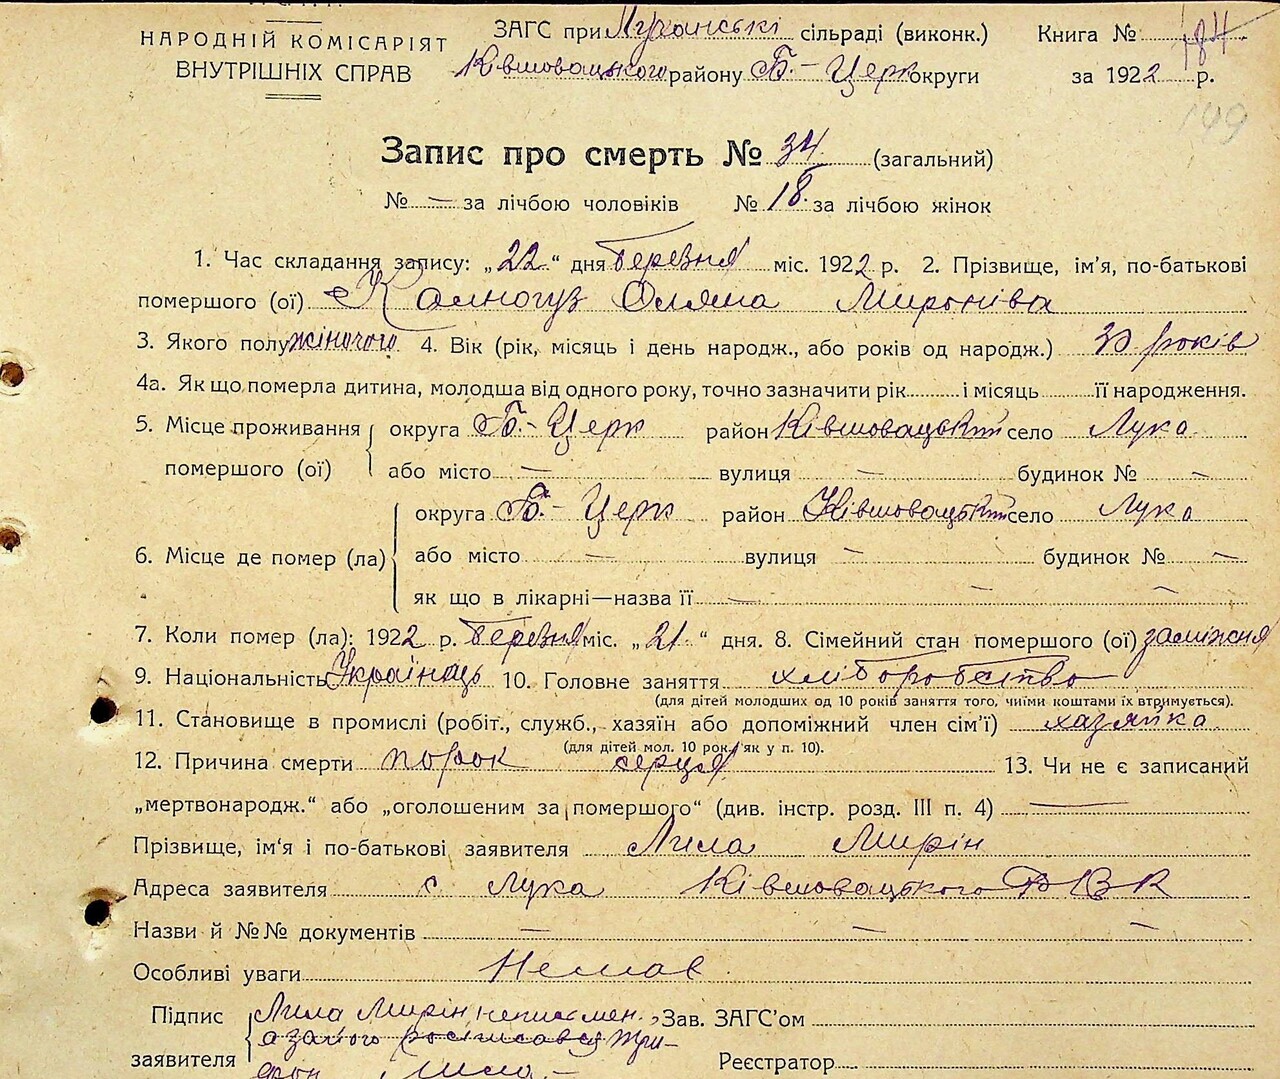 НАРОДНІЙ КОМІСАРІЯТ
ВНУТРІШНІХ СПРАВ
ЗАГС при Лучанській сільраді (виконк.) Книга № 184
Ківшоватського району Б.-Церк округи за 1922 р.
149
Запис про смерть № 34 (загальний)
№ — за лічбою чоловіків № 18. за лічбою жінок
1. Час складання запису: „22“ дня Березня міс. 1922 р. 2. Прізвище, ім'я, по-батькові
помершого (ої) Оляна Миронівa
3. Якого полу жіночого 4. Вік (рік, місяць і день народж., або років од народж.) 30 років
4а. Як що померла дитина, молодша від одного року, точно зазначити рік і місяць її народження.
5. Місце проживання округа Б.-Церк район село Лука
помершого (ої) або місто — вулиця — будинок № —
округа Б.-Церк район село Лука
6. Місце де помер (ла) або місто — вулиця — будинок № —
як що в лікарні—назва її — — —
7. Коли помер (ла): 1922 р. Березня міс. „21.“ дня. 8. Сімейний стан помершого (ої) заміжня
9. Національність Українець 10. Головне заняття хліборобство
(для дітей молодших од 10 років заняття того, чиїми коштами їх втримується).
11. Становище в промислі (робіт., служб., хазяїн або допоміжний член сім'ї) хазяйка
(для дітей мол. 10 рок. як у п. 10).
12. Причина смерти порок серця 13. Чи не є записаний
„мертвонародж.“ або „оголошеним за помершого“ (див. інстр. розд. III п. 4) —
Прізвище, ім'я і по-батькові заявителя Лила Мирін
Адреса заявителя с Лука Ківшоватського РВК
Назви й №№ документів — — —
Особливі уваги Немає
Підпис Лила Мирін неписмен., Зав. ЗАГС'ом
а за його росписався Три-
заявителя фон Лила.— Реєстратор